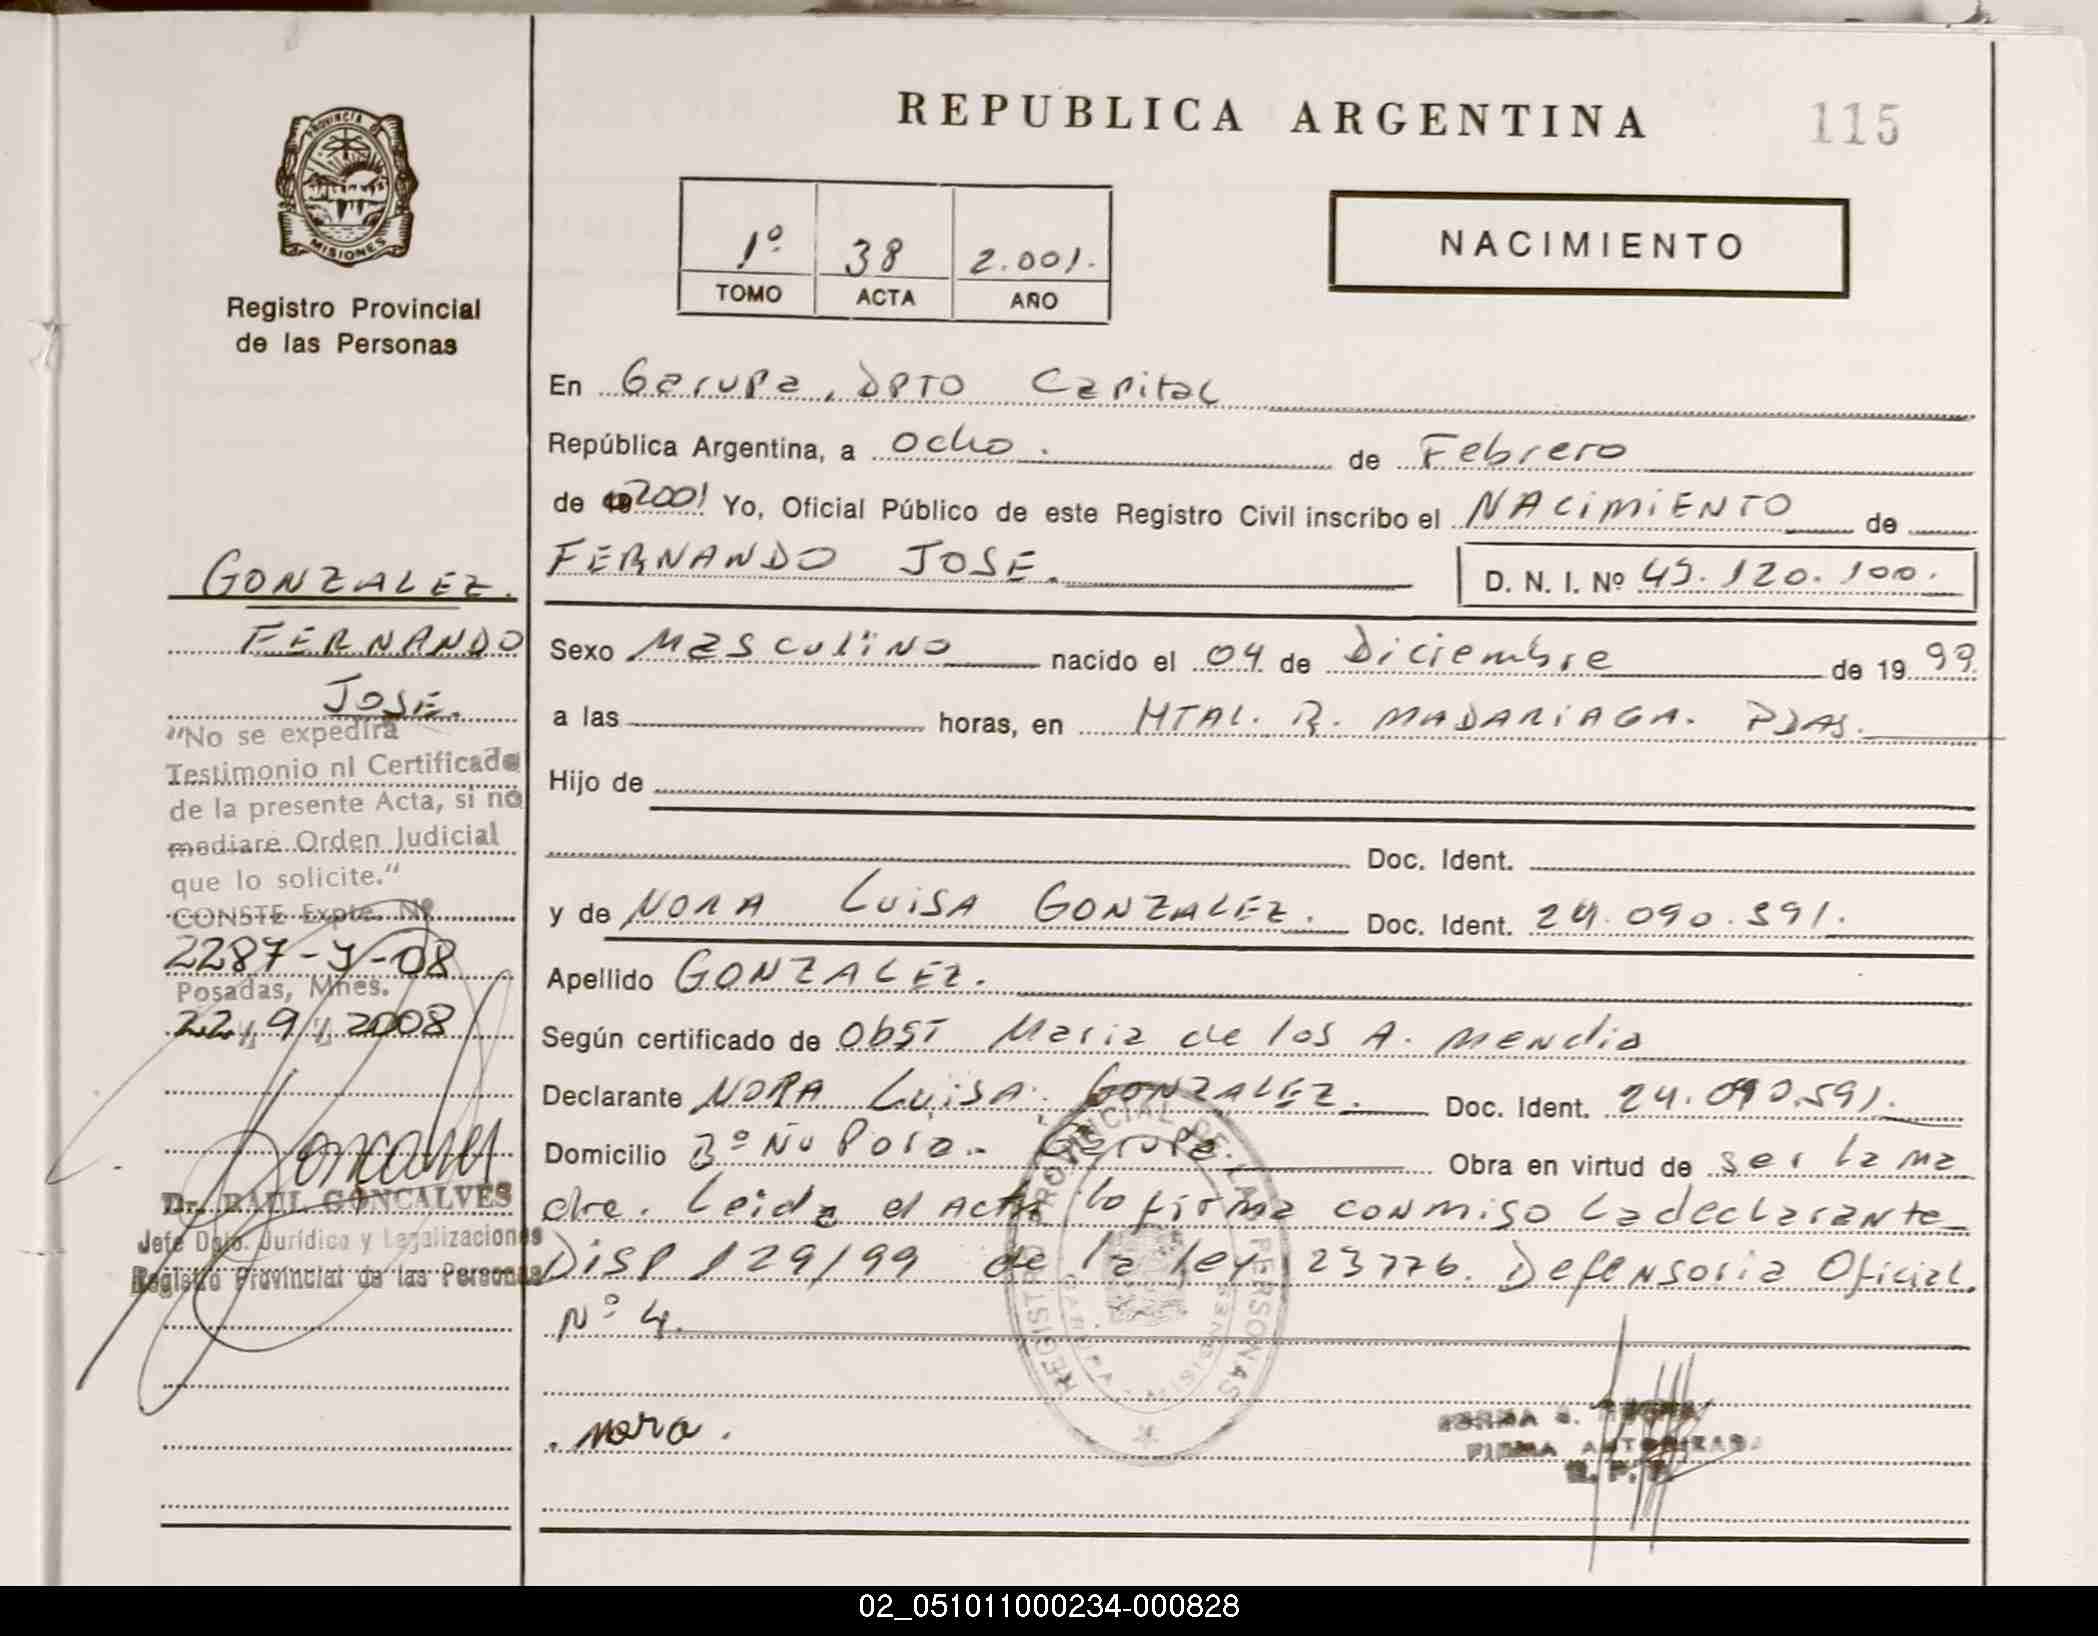 REPUBLICA ARGENTINA
115
PROVINCIA D
MISIONES
Registro Provincial
de las Personas
1º 38 2.001.
TOMO ACTA AÑO
NACIMIENTO
En Garupa, DPTO Capital
República Argentina, a ocho. de Febrero
de 2001 Yo, Oficial Público de este Registro Civil inscribo el NACIMIENTO de
FERNANDO JOSE.
D. N. I. Nº 43.120.100.
Sexo Masculino nacido el 04 de Diciembre de 19 99
a las horas, en HTAL. R. MADARIAGA. PDAS.
Hijo de
Doc. Ident.
y de NORA LUISA GONZALEZ. Doc. Ident. 24.090.591.
Apellido GONZALEZ.
Según certificado de Obst Maria de los A. Mendia
Declarante NORA LUISA GONZALEZ. Doc. Ident. 24.090.591.
Domicilio Bº Ñu Pora - Garupa. Obra en virtud de ser la ma
dre. Leida el Acta la firma conmigo La declarante
DISP 129/99 de la Ley 23776. Defensoria Oficial.
Nº 4.
. nora .
FIRMA AUTORIZADA
REGISTRO PROVINCIAL DE LAS PERSONAS
GARUPA - MISIONES
GONZALEZ.
FERNANDO
JOSE.
"No se expedirá
Testimonio ni Certificado
de la presente Acta, si no
mediare Orden Judicial
que lo solicite."
CONSTE Expte. Nº
2287-J-08
Posadas, Mnes.
22/9/2008
Dr. RAUL GONCALVES
Jefe Dpto. Jurídico y Legalizaciones
Registro Provincial de las Personas
02_051011000234-000828